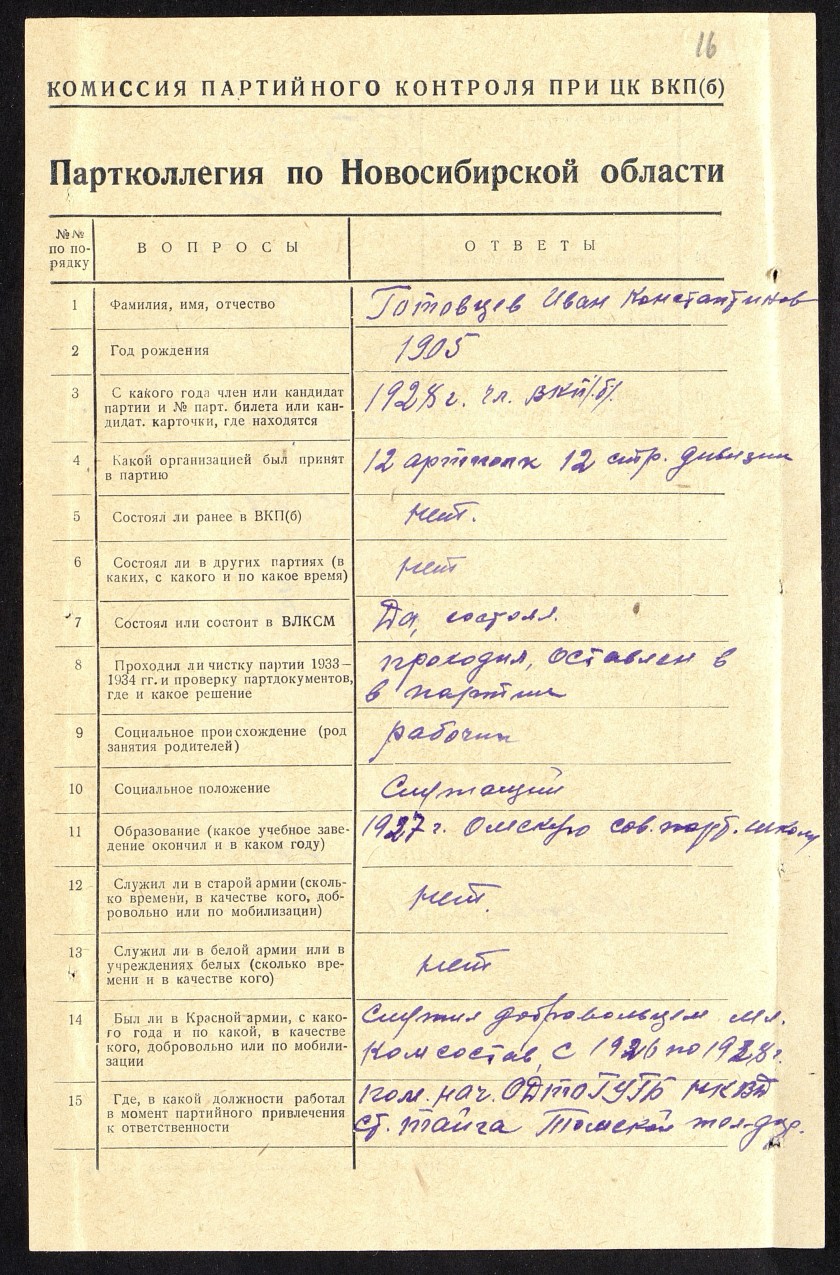 16
КОМИССИЯ ПАРТИЙНОГО КОНТРОЛЯ ПРИ ЦК ВКП(б)
Партколлегия по Новосибирской области
№№ по по-рядку
ВОПРОСЫ
ОТВЕТЫ
1 Фамилия, имя, отчество Готовцев Иван Константинов
2 Год рождения 1905
3 С какого года член или кандидат 1928 г. чл. ВКП/б/.
партии и № парт. билета или кан-
дидат. карточки, где находятся
4 Какой организацией был принят 12 артполк 12 стр. дивизии
в партию
5 Состоял ли ранее в ВКП(б) нет.
6 Состоял ли в других партиях (в нет
каких, с какого и по какое время)
7 Состоял или состоит в ВЛКСМ Да, состоял.
8 Проходил ли чистку партии 1933— проходил, оставлен в
1934 гг. и проверку партдокументов, в партии
где и какое решение
9 Социальное происхождение (род рабочий
занятия родителей)
10 Социальное положение Служащий
11 Образование (какое учебное заве- 1927 г. Омскую сов. парт. школу
дение окончил и в каком году)
12 Служил ли в старой армии (сколь- нет.
ко времени, в качестве кого, доб-
ровольно или по мобилизации)
13 Служил ли в белой армии или в нет
учреждениях белых (сколько вре-
мени и в качестве кого)
14 Был ли в Красной армии, с како- Служил добровольцем мл.
го года и по какой, в качестве комсостав, с 1926 по 1928 г.
кого, добровольно или по мобили-
зации
15 Где, в какой должности работал пом. нач. ОДТОГУГБ НКВД
в момент партийного привлечения ст. Тайга Томской жел-дор.
к ответственности